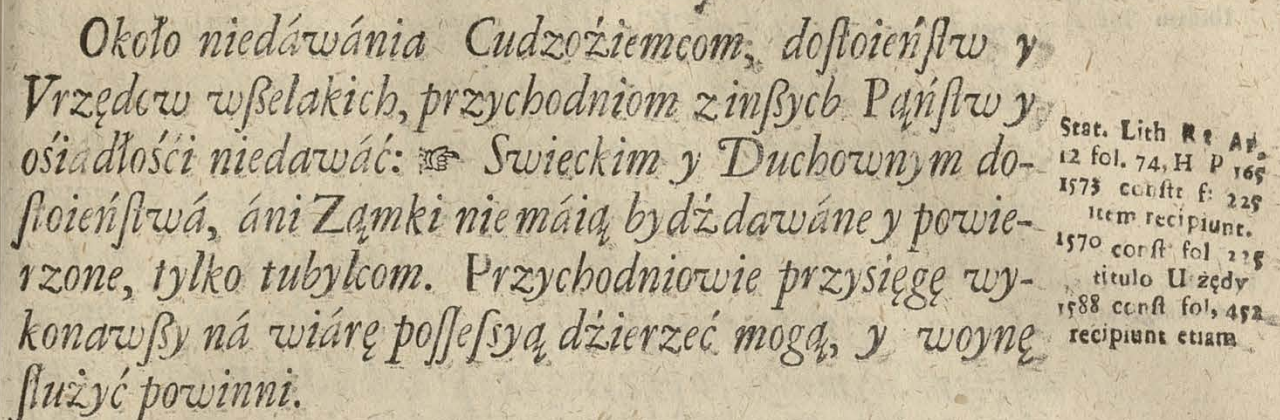 Około niedáwánia Cudzoźiemcom, doſtoieńſtw y
Vrzędow wßelakich, przychodniom z inßych Páńſtw y
ośiadłośći niedawáć: ☞ Swieckim y Duchownym do-
ſtoieńſtwá, áni Ząmki nie máią bydź dawáne y powie-
rzone, tylko tubylcom. Przychodniowie przyſięgę wy-
konawßy ná wiárę poſſeſsyą dźierzeć mogą, y woynę
ſłużyć powinni.
Stat. Lith
12 fol. 74, H P 165
1573 conſtt f: 225
Item recipiunt.
1570 conſt fol 225
titulo U zędy
1588 conſt fol, 452
recipiunt etiam